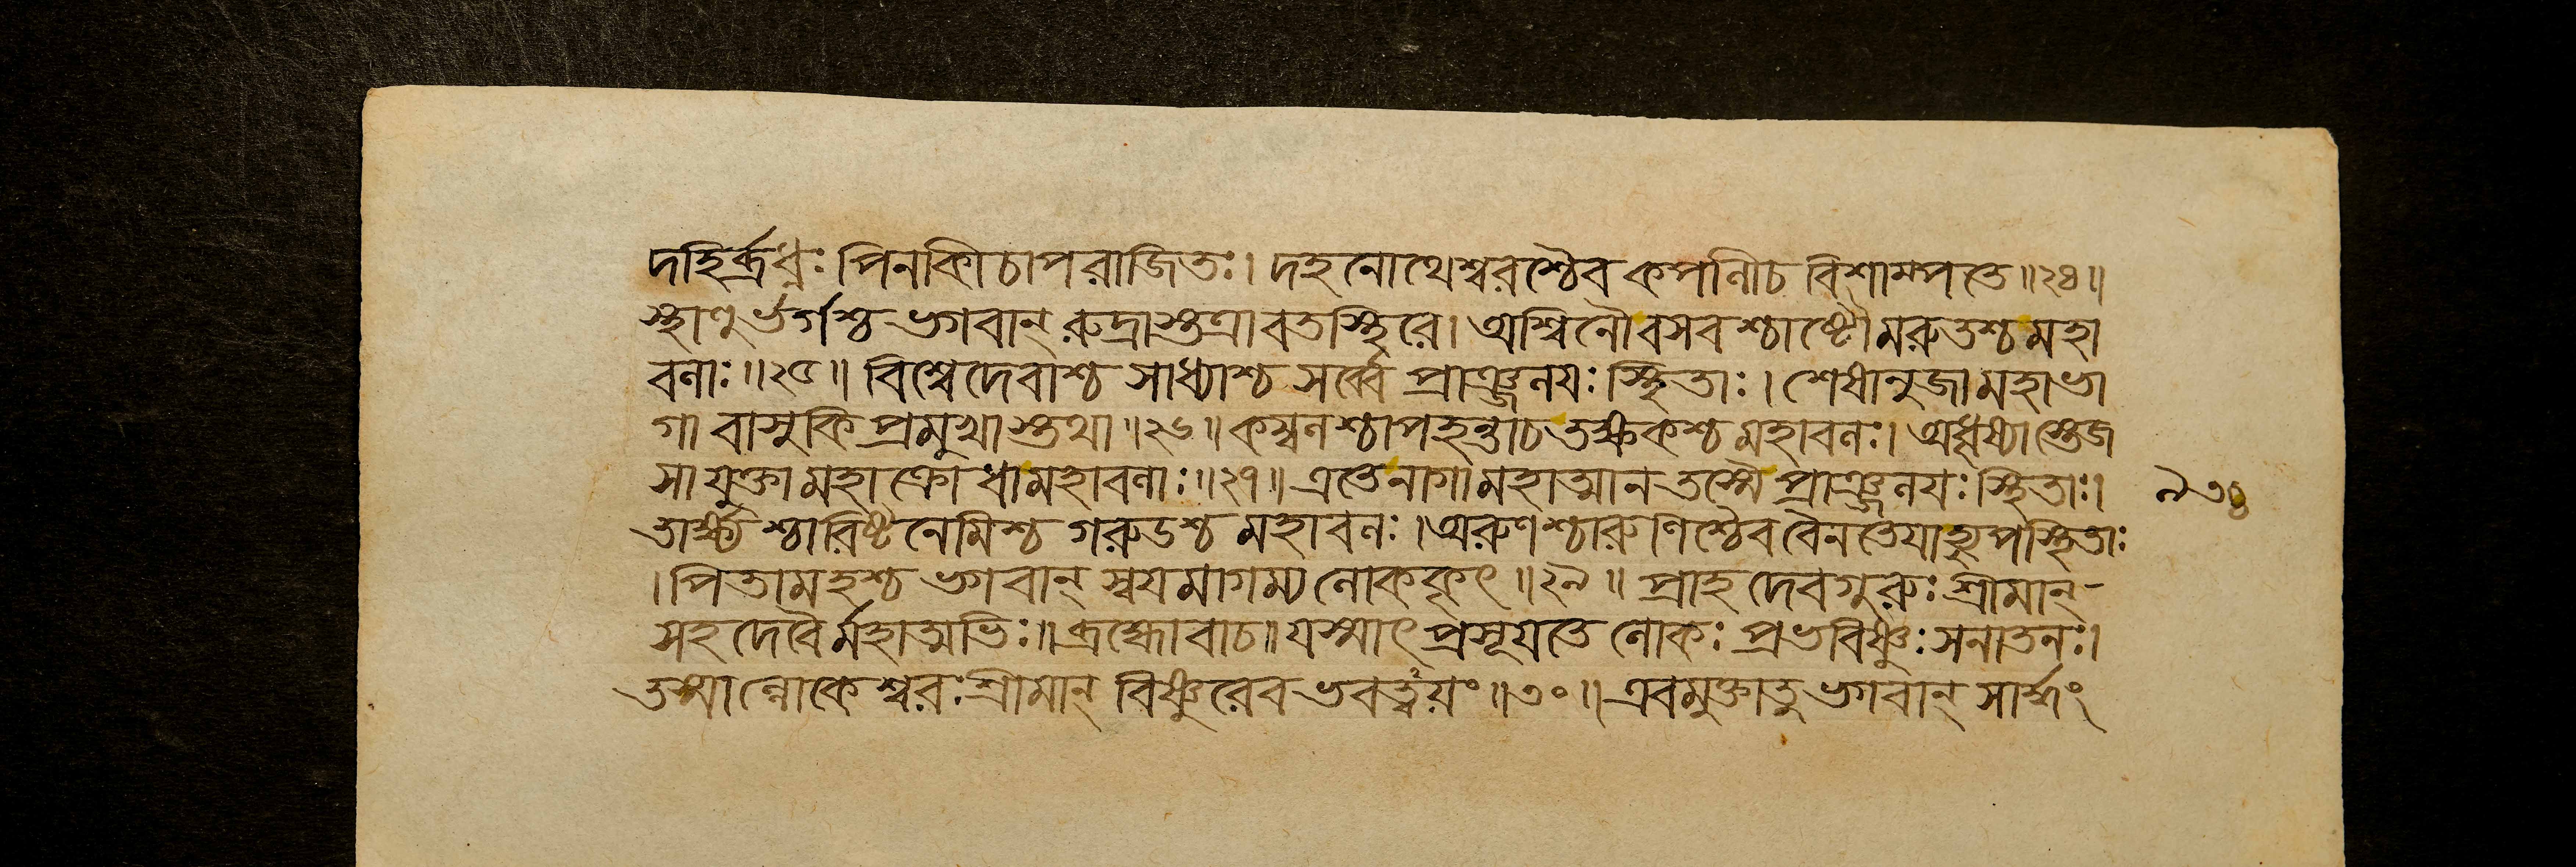 দহির্ব্রধ্নঃ পিনাকী চাপরাজিতঃ। দহনোথেশ্বরশ্চৈব কপালী চ বিশাম্পতে॥২৪॥
স্থাণুর্ভর্গশ্চ ভগবান্ রুদ্রাস্তত্রাবতস্থিরে। অশ্বিনৌ বসবশ্চাষ্টৌ মরুতশ্চ মহা
বলাঃ॥২৫॥ বিশ্বেদেবাশ্চ সাধ্যাশ্চ সর্ব্বে প্রাঞ্জলয়ঃ স্থিতাঃ। শেষানুজা মহাভা
গা বাসুকিপ্রমুখাস্তথা॥২৬॥ কম্বলশ্চাপহন্তা চ তক্ষকশ্চ মহাবলঃ। অধৃষ্যাস্তেজ
সা যুক্তা মহাক্রোধা মহাবলাঃ॥২৭॥ এতে নাগা মহাত্মান তস্মৈ প্রাঞ্জলয়ঃ স্থিতাঃ।
তার্ক্ষ্যশ্চারিষ্টনেমিশ্চ গরুডশ্চ মহাবলঃ। অরুণশ্চারুণিশ্চৈব বৈনতেয়া হ্যুপস্থিতাঃ
। পিতামহশ্চ ভগবান্ স্বয়মাগম্য লোককৃৎ॥২৯॥ প্রাহ দেবগুরুঃ শ্রীমান্-
সহ দেবৈর্মহাত্মভিঃ॥ ব্রহ্মোবাচ॥ যস্মাৎ প্রসূয়তে লোকঃ প্রভবিষ্ণুঃ সনাতনঃ।
তস্মাল্লোকেশ্বরঃ শ্রীমান্ বিষ্ণুরেব ভবত্বয়ং॥৩০॥ এবমুক্তা তু ভগবান্ সার্দ্ধং